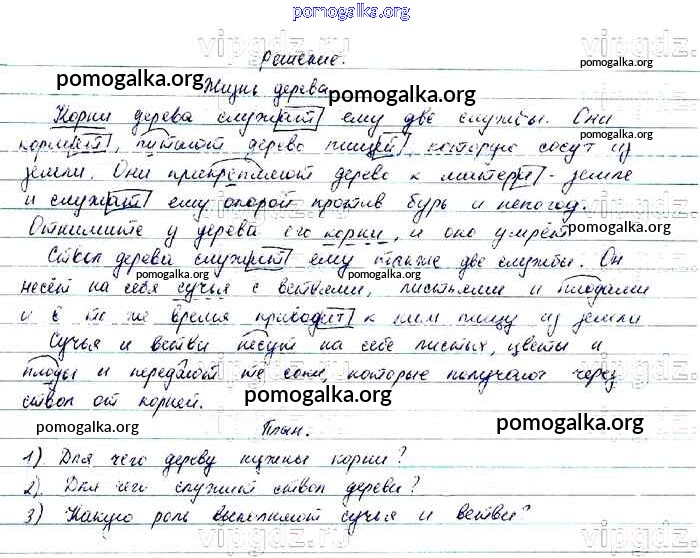 pomogalka.org
Решение.
Жизнь дерева
pomogalka.org
pomogalka.org
Корни дерева служат ему две службы. Они
pomogalka.org
кормят, питают дерево пищей, которую сосут из
земли. Они прикрепляют дерево к матери-земле
и служат ему опорой против бурь и непогод.
Отнимите у дерева его корни, и оно умрёт
pomogalka.org
Ствол дерева служит ему также две службы. Он
pomogalka.org
pomogalka.org
несёт на себя сучья с ветвями, листьями и плодами
и в то же время приводит к ним пищу из земли
Сучья и ветви несут на себе листья, цветы и
плоды и передают те соки, которые получают через
ствол от корней.
pomogalka.org
pomogalka.org
План.
1) Для чего дереву нужны корни?
2) Для чего служит ствол дереву?
3) Какую роль выполняют сучья и ветви?
vipgdz.ru